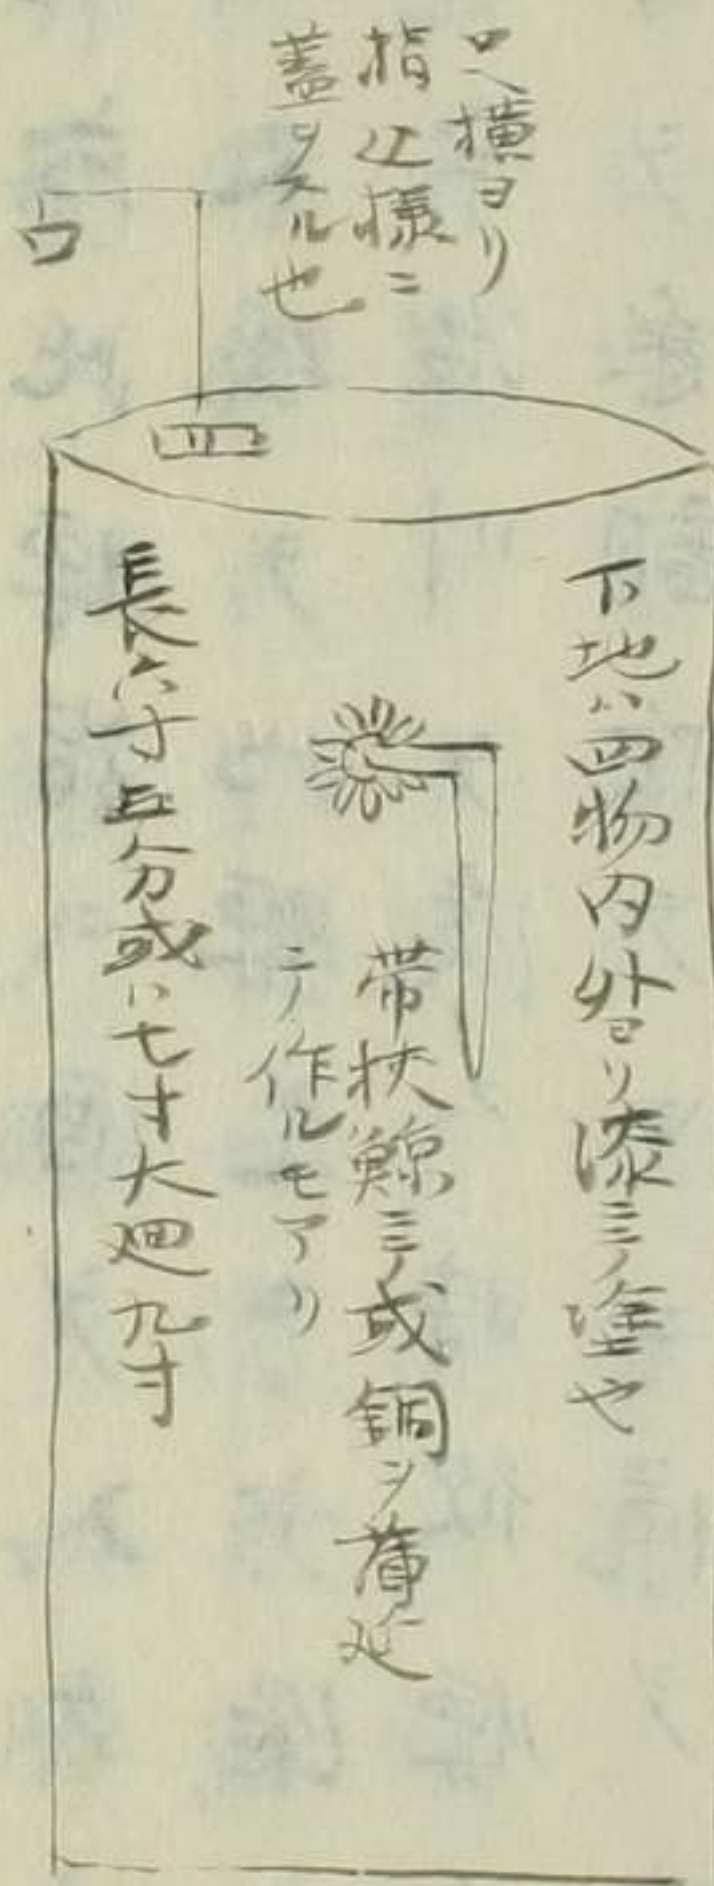 口ハ横ヨリ
指込様ニ
蓋ヲスル也
口
下地ハ四物内外ヨリ漆ニテ塗也
帯挟鯨ニテ或銅ヲ薄延
ニテ作ルモアリ
長六寸五分或ハ七寸大廻九寸